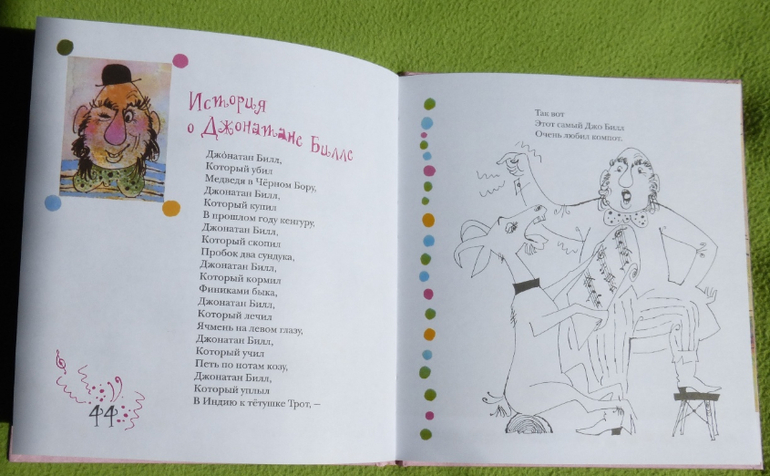 История
о Джонатане Билле
Джо́натан Билл,
Который убил
Медведя в Чёрном Бору,
Джонатан Билл,
Который купил
В прошлом году кенгуру,
Джонатан Билл,
Который скопил
Пробок два сундука,
Джонатан Билл,
Который кормил
Финиками быка,
Джонатан Билл,
Который лечил
Ячмень на левом глазу,
Джонатан Билл,
Который учил
Петь по нотам козу,
Джонатан Билл,
Который уплыл
В Индию к тётушке Трот, –
44
Так вот
Этот самый Джо Билл
Очень любил компот.